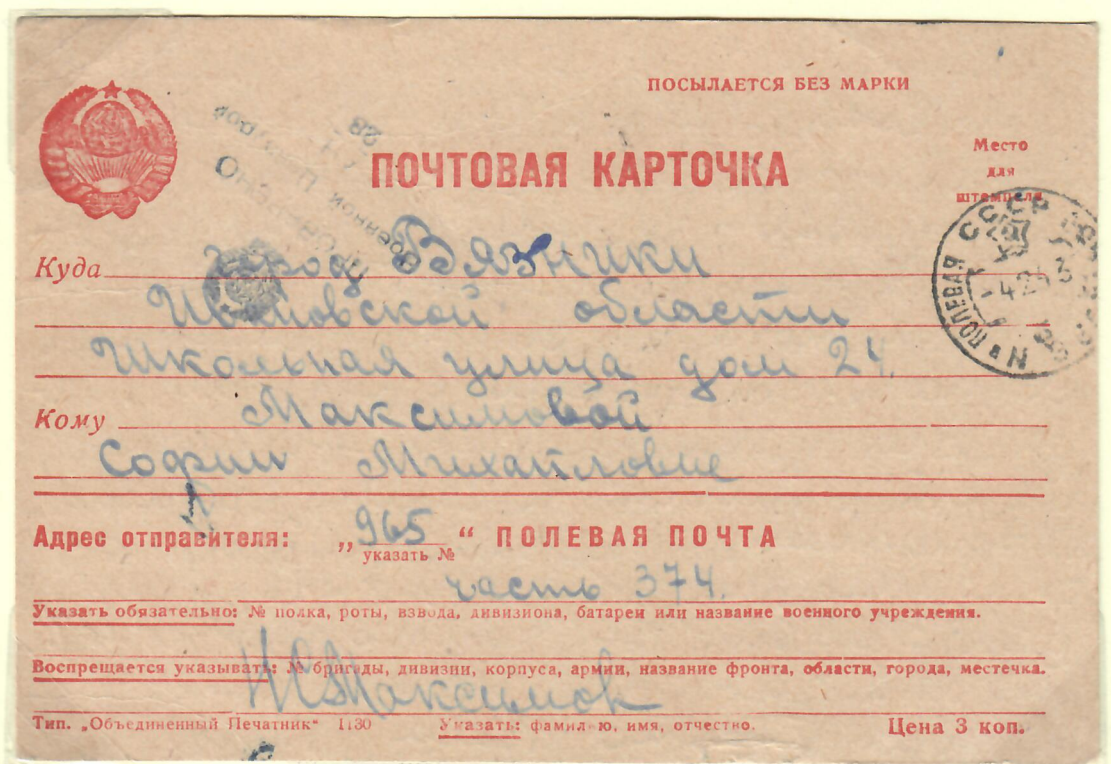 ПОСЫЛАЕТСЯ БЕЗ МАРКИ
ПОЧТОВАЯ КАРТОЧКА
Место
для
штемпеля
28
Военной Цензурой
СССР
№ ПОЛЕВАЯ
Куда город Вязники
Ивановской области
Школьная улица дом 24.
Кому Максимовой
Софии Михайловне
Адрес отправителя: „965“ ПОЛЕВАЯ ПОЧТА
указать №
часть 374.
Указать обязательно: № полка, роты, взвода, дивизиона, батареи или название военного учреждения.
Воспрещается указывать: № бригады, дивизии, корпуса, армии, название фронта, области, города, местечка.
Максимов
Тип. „Объединенный Печатник“ 1130 Указать: фамилию, имя, отчество. Цена 3 коп.